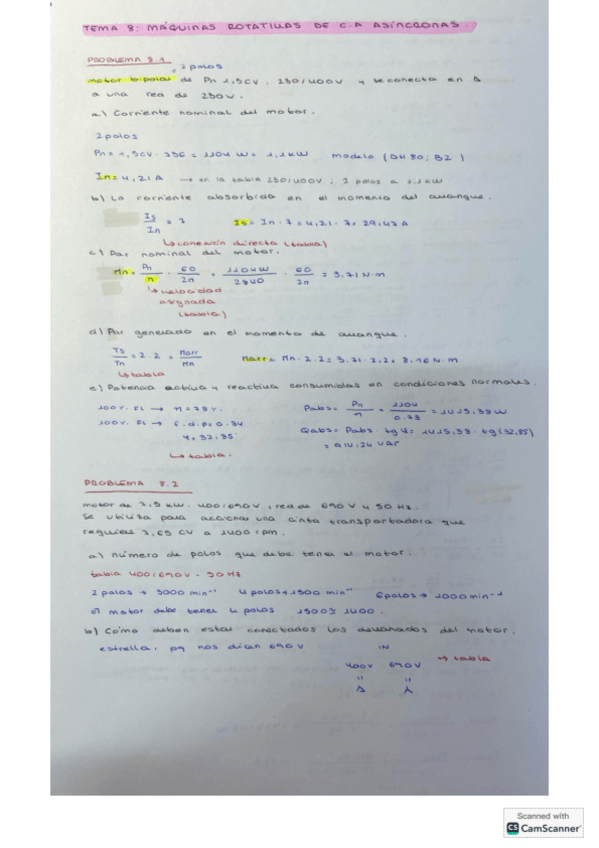 TEMA 8: MÁQUINAS ROTATIVAS DE C.A ASÍNCRONAS.
PROBLEMA 8.1
= 2 polos
motor bipolar de Pn 1,5CV, 230/400V y se conecta en Δ
a una red de 230V.
a) Corriente nominal del motor.
2 polos
Pn = 1,5CV · 736 = 1104 W = 1,1 kW modelo (DH 80; B2)
In = 4,21 A → en la tabla 230/400V; 2 polos a 1.1kW
b) La corriente absorbida en el momento del arranque.
Is/In = 7 Is = In · 7 = 4,21 · 7 = 29,47 A
↳ conexión directa (tabla)
c) Par nominal del motor.
Mn = Pn/n · 60/2π = 1104W/2840 · 60/2π = 3.71 N·m
↳ velocidad
asignada
(tabla)
d) Par generado en el momento de arranque.
Ts/Tn = 2.2 = Marr/Mn Marr = Mn · 2.2 = 3.71 · 2,2 = 8.16 N·m
↳ tabla
e) Potencia activa y reactiva consumidas en condiciones normales.
100%. FL → η = 78%. Pabs = Pn/η = 1104/0.78 = 1415,38 W
100%. FL → f.d.p = 0.84 Qabs = Pabs tg φ = 1415,38 · tg(32,85)
φ = 32,85° = 914.24 VAr
↳ tabla.
PROBLEMA 8.2
motor de 7.5 kW. 400/690V, red de 690V y 50 Hz.
Se utiliza para accionar una cinta transportadora que
requiere 7,65 CV a 1400 rpm.
a) número de polos que debe tener el motor.
tabla 400/690V - 50Hz
2 polos → 3000 min⁻¹ 4 polos → 1500 min⁻¹ 6 polos → 1000 min⁻¹
el motor debe tener 4 polos 1500 ≥ 1400.
b) Cómo deben estar conectados los devanados del motor.
estrella, pq nos dan 690V IN
400V 690V → tabla
" "
Δ Y
Scanned with
CS CamScanner